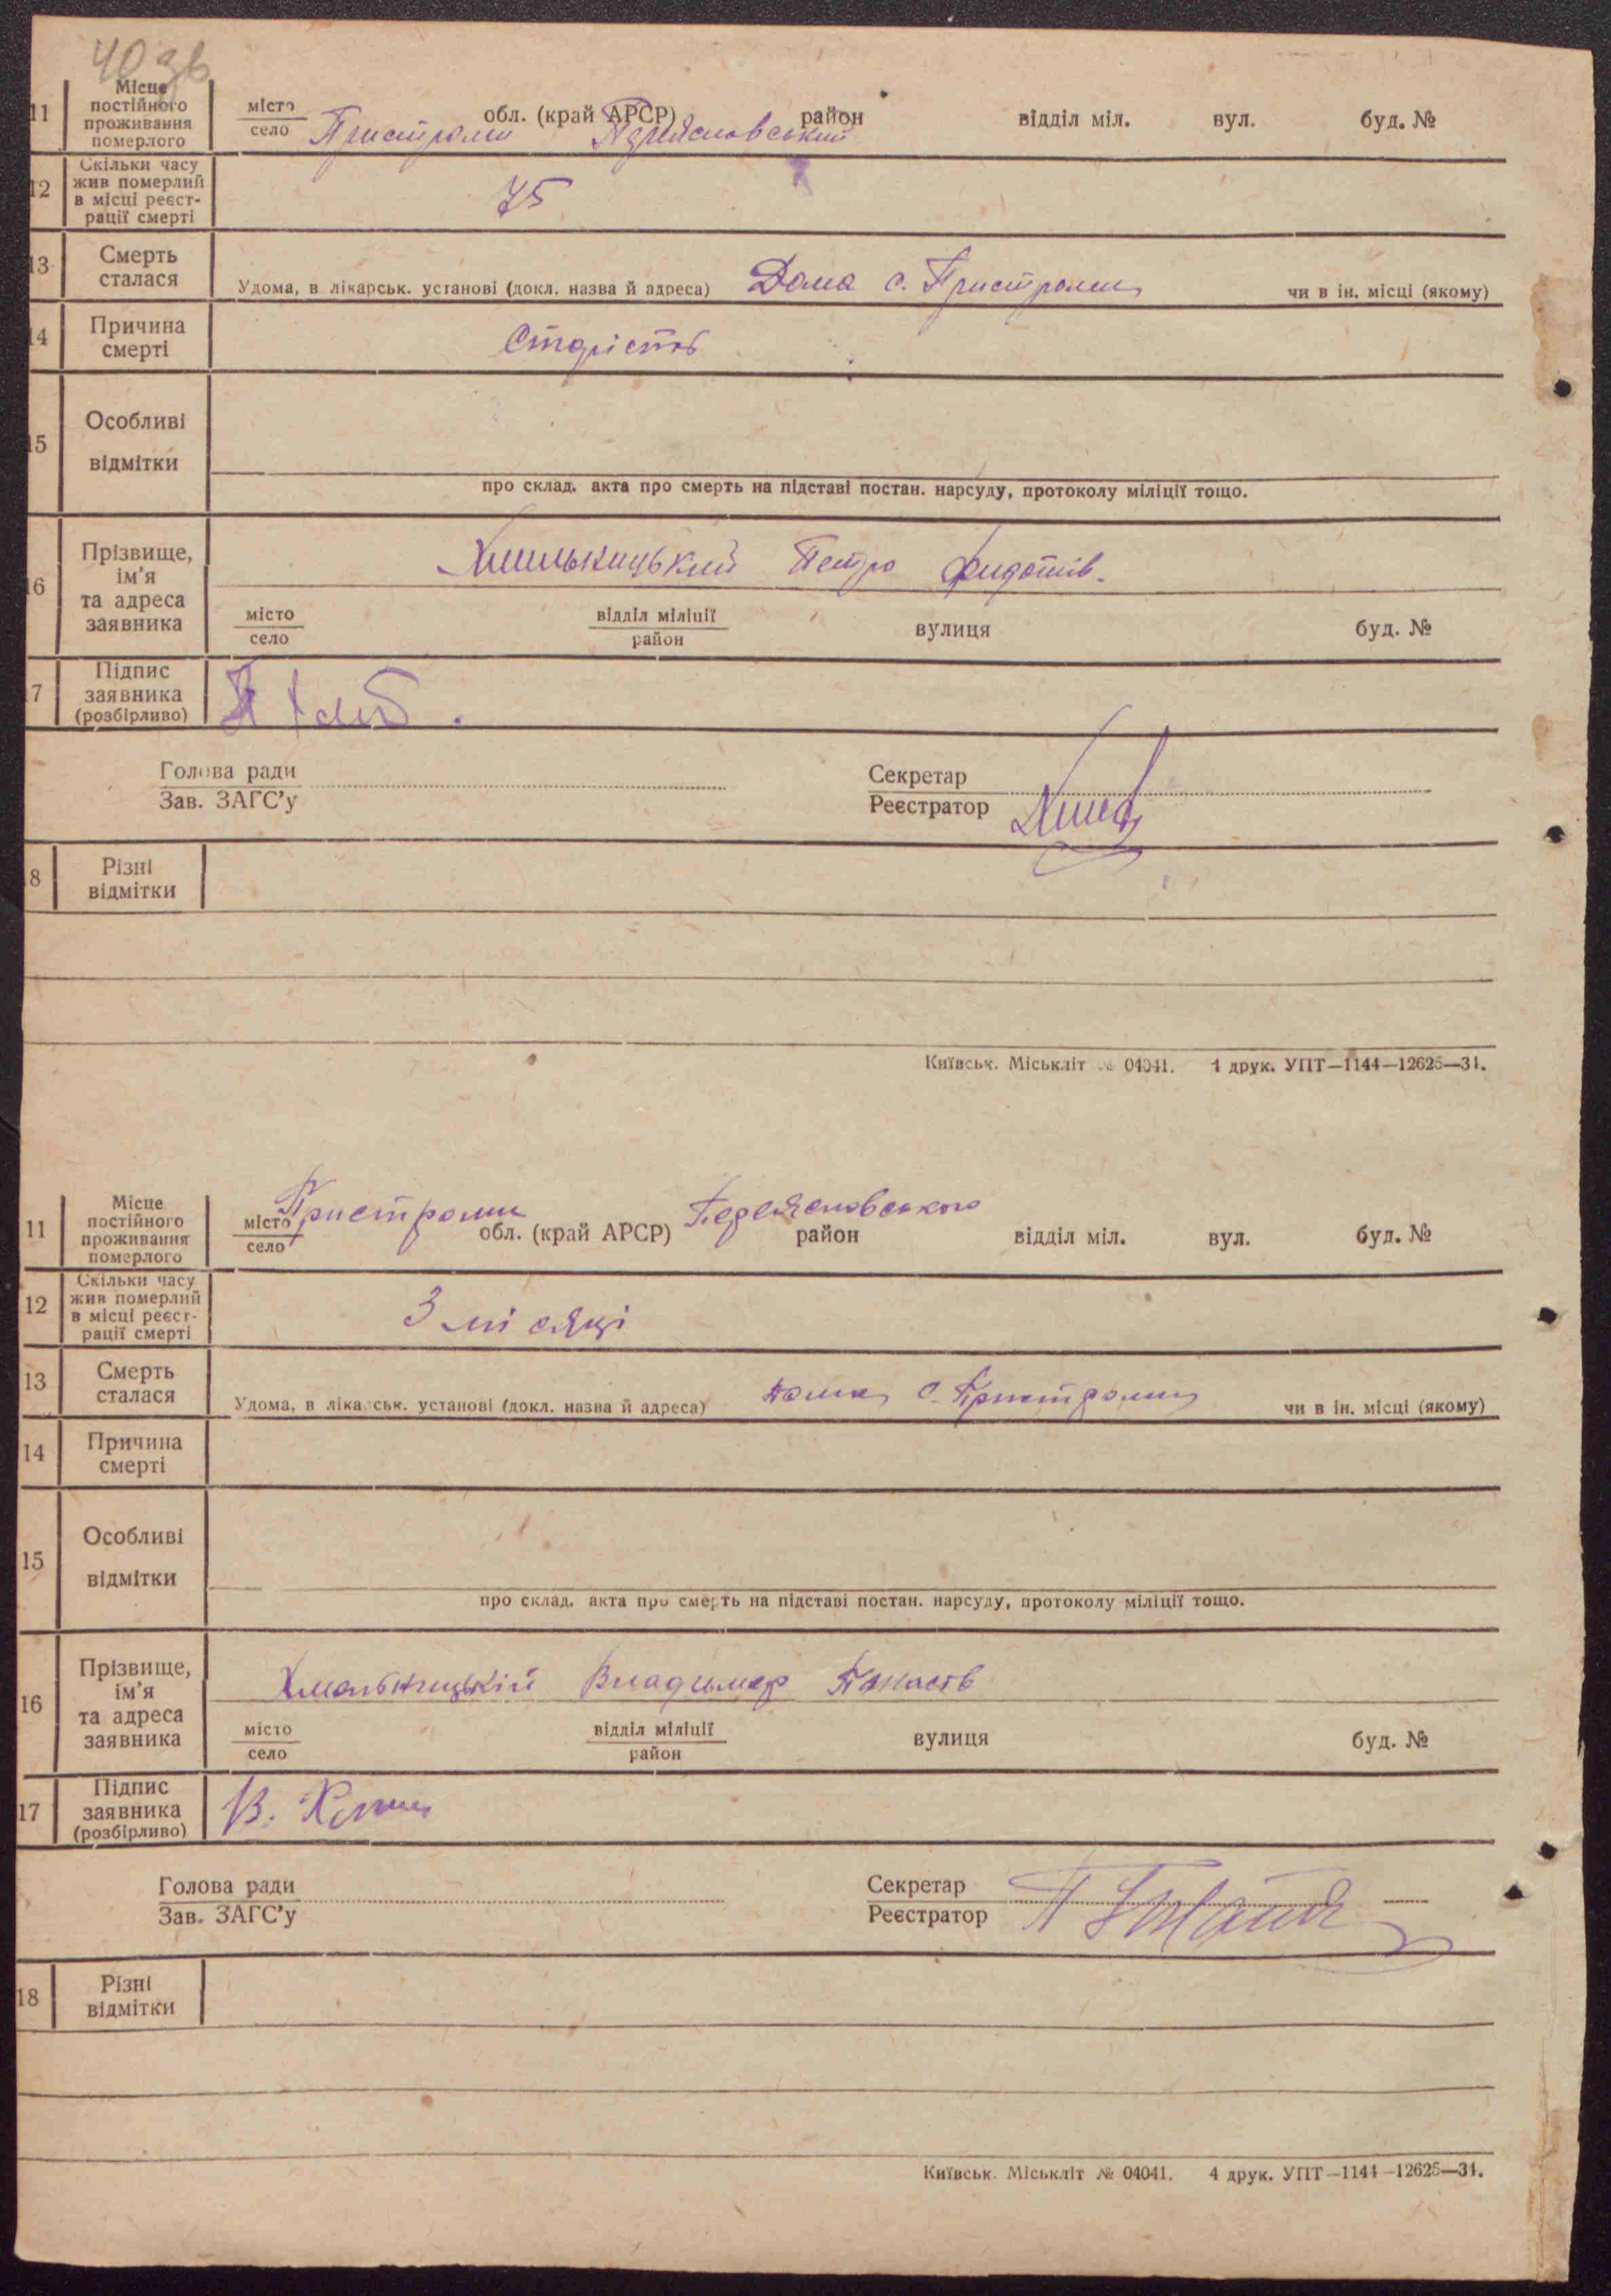 40 зв
11 Місце постійного проживання померлого
місто село Пристроми обл. (край АРСР) район відділ міл. вул. буд. №
12 Скільки часу жив померлий в місці реєстрації смерті
75
13 Смерть сталася
Удома, в лікарськ. установі (докл. назва й адреса) Дома с. Пристроми чи в ін. місці (якому)
14 Причина смерті
Старість
15 Особливі відмітки
про склад. акта про смерть на підставі постан. нарсуду, протоколу міліції тощо.
16 Прізвище, ім'я та адреса заявника
Петро
місто село відділ міліції район вулиця буд. №
17 Підпис заявника (розбірливо)
Голова ради Секретар
Зав. ЗАГС'у Реєстратор
18 Різні відмітки
Київськ. Міськліт № 04041. 4 друк. УПТ—1144—12625—31.
11 Місце постійного проживання померлого
місто село Пристроми обл. (край АРСР) район відділ міл. вул. буд. №
12 Скільки часу жив померлий в місці реєстрації смерті
3 місяці
13 Смерть сталася
Удома, в лікарськ. установі (докл. назва й адреса) дома с. Пристроми чи в ін. місці (якому)
14 Причина смерті
15 Особливі відмітки
про склад. акта про смерть на підставі постан. нарсуду, протоколу міліції тощо.
16 Прізвище, ім'я та адреса заявника
Хмельницькій Владимер
місто село відділ міліції район вулиця буд. №
17 Підпис заявника (розбірливо)
Голова ради Секретар
Зав. ЗАГС'у Реєстратор
18 Різні відмітки
Київськ. Міськліт № 04041. 4 друк. УПТ—1144—12625—31.